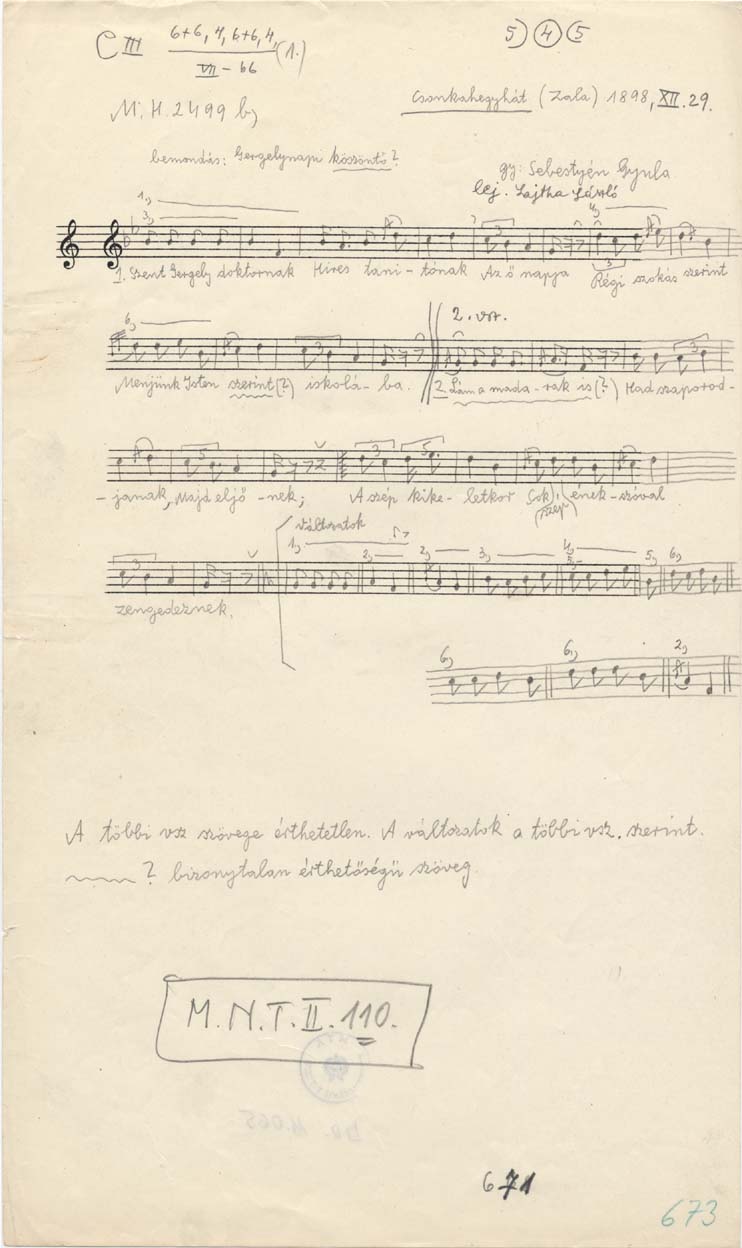 C III 6+6, 4, 6+6, 4, (1.)
VII – b6
5) ④ (5
M. H. 2499 b)
Csonkahegyhát (Zala) 1898, XII. 29.
bemondás: Gergelynapi köszöntő?
gy: Sebestyén Gyula
lej. Lajtha László
1) 3) 4)
1. Szent Gergely doktornak Híres taní - tónak Az ő napja Régi szokás szerint
6) 2. vsz.
Menjünk Isten szerint (?) iskolá - ba. 2. Lám a mada - rak is (?) Had szaporod -
- janak, Majd eljő - nek; A szép kike - letkor Sok) ének - szóval
(szép
Változatok
1) 2) 2) 3) 4) 5) 5) 6)
zengedeznek.
6) 6) 2)
A többi vsz szövege érthetetlen. A változatok a többi vsz. szerint.
? bizonytalan érthetőségű szöveg
M. N. T. II. 110.
671
673